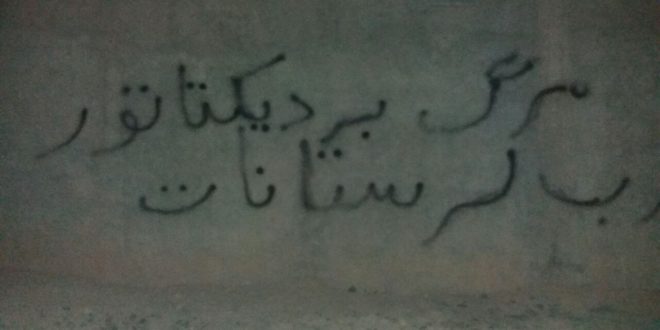 مرگ بر دیکتاتور
لرستانات